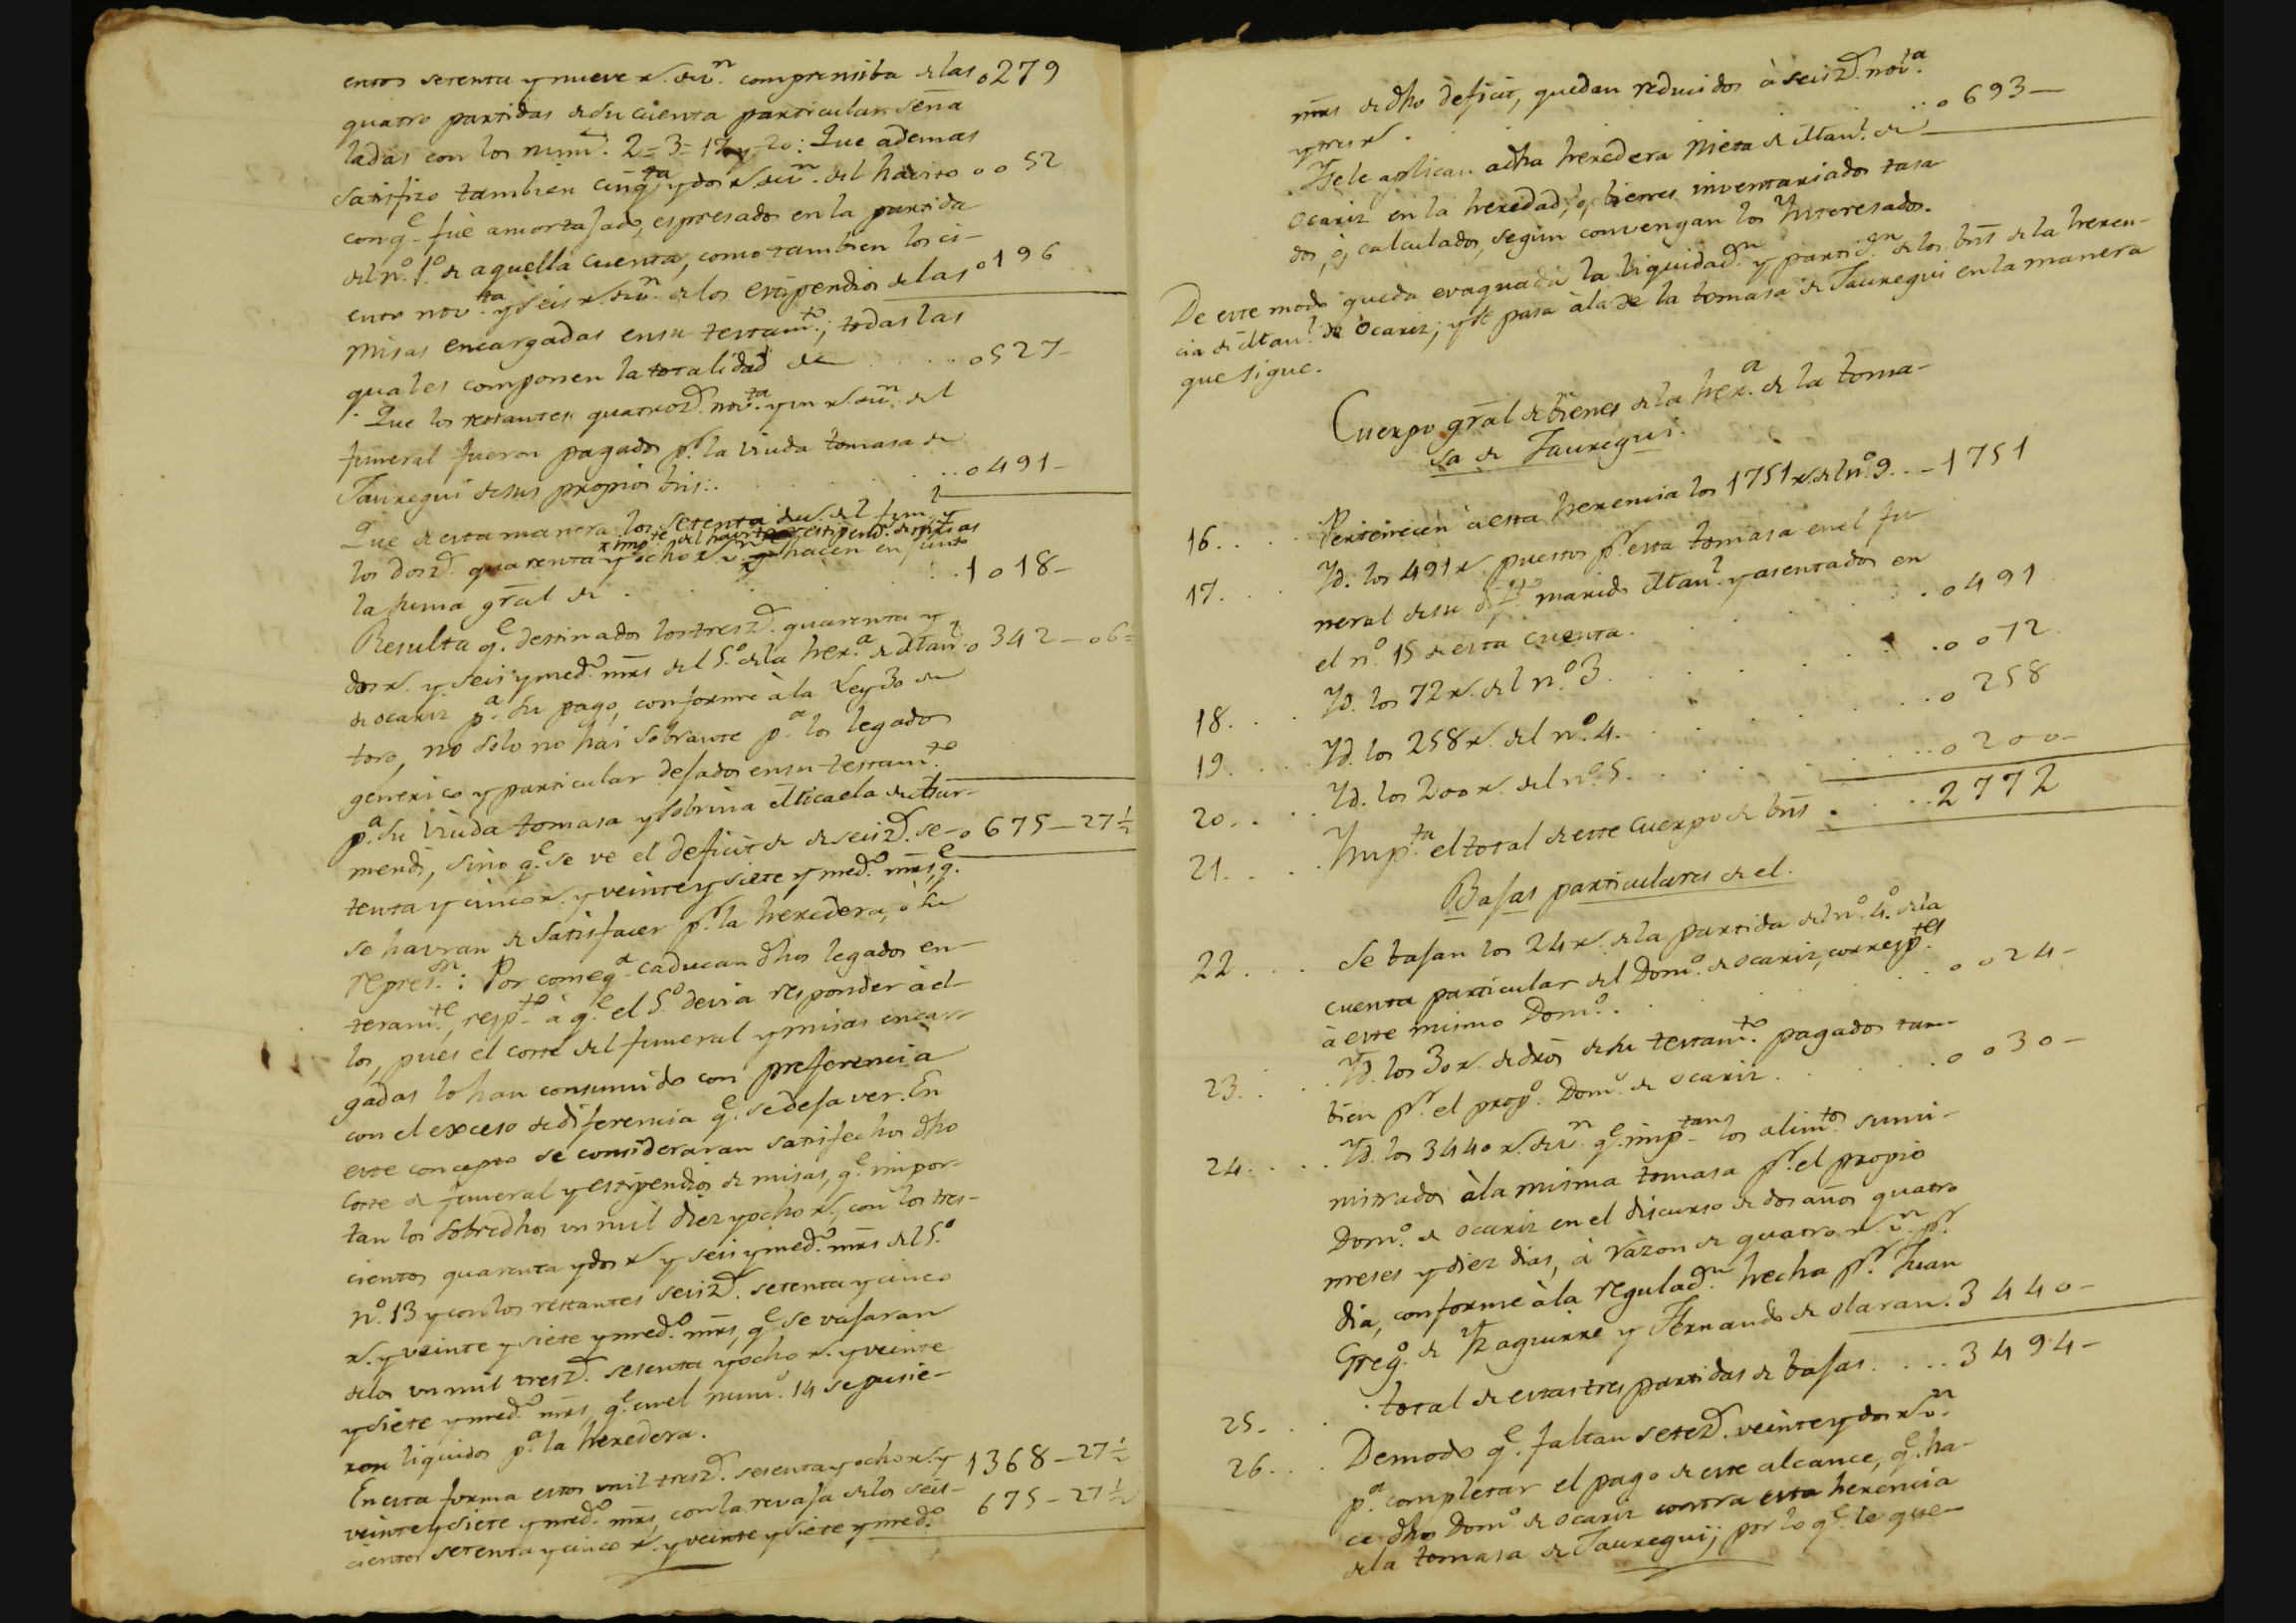 entos setenta y nueve r.s de v.n comprensiba de las 0279
quatro partidas de su cuenta particular seña
ladas con los num.s 2=3=17 y 20: Que ademas
satisfizo tambien cinq.ta y dos r.s de v.n del havito 0052
con q.e fue amortajado, espresados en la partida
del n.o 1.o de aquella cuenta, como tambien los ci-
ento nov.ta y seis r.s de v.n de los estipendios de las 0196
misas encargadas en su testam.to; todas las
quales componen la totalidad de . . . . 0527-
Que los restantes quatroz.s nov.ta y un r.s de v.n del
funeral fueron pagados p.r la viuda tomasa de
Jauregui de sus propios bns: . . . . . 0491-
Que de esta manera los setenta
imp.te del havito estipend.s de misas
los dosz.s quarenta y ocho r.s v.n hacen en junto
la suma gral de . . . . . 1018-
Resulta q.e destinados los tresz.s quarenta y
dos r.s y seis y med.o mrs del 5.o de la her.a de Man.l 0342-06½
de ocariz p.a su pago, conforme à la Ley 30 de
toro, no solo no hai sobrante p.a los legados
generico y particular dejados en su testam.to
p.a su viuda tomasa y sobrina Micaela de Astur-
mendi, sino q.e se ve el deficit de seisz.s se- 0675-27½
tenta y cinco r.s y veinte y siete y med.o mrs, q.e
se havran de satisfacer p.r la heredera, o su
repres.on: Por conseq.a caducan dhos legados en-
teram.te, resp.to à q.e el 5.o devia responder à el-
los, pues el coste del funeral y misas encar-
gadas lo han consumido con preferencia
con el exceso de diferencia q.e se deja ver. En
este concepto se consideraran satisfechos dho
coste de funeral y estipendios de misas, q.e impor-
tan los sobredhos un mil diez y ocho r.s, con los tres-
cientos quarenta y dos r.s y seis y med.o mrs del 5.o
n.o 13 y con los restantes seisz.s setenta y cinco
r.s y veinte y siete y med.o mrs, q.e se vajaran
de los un mil tresz.s sesenta y ocho r.s y veinte
y siete y med.o mrs, q.e en el num.o 14 se pusie-
ron liquidos p.a la heredera.
En esta forma estos mil tresz.s sesenta y ocho r.s y 1368-27½
veinte y siete y med.o mrs, con la revaja de los seis- 675-27½
cientos setenta y cinco r.s y veinte y siete y med.o
mrs de dho deficit, quedan reducidos à seisz.s nov.a
y tres r.s . . . 0693-
Y se le aplican a dha heredera Nieta de Man.l de
Ocariz en la heredad, ó, bienes inventariados tasa
dos, ó, calculados, segun convengan los Ynteresados.
De este modo queda evaquada la liquidad.n y partic.on de los bns de la heren-
cia de Man.l de Ocariz; y se pasa à la de la tomasa de Jauregui en la manera
que sigue.
Cuerpo gral de bienes de la her.a de la toma-
sa de Jauregui.
16. . . . Pertenecen à esta herencia los 1751 r.s del n.o 9. . - 1751
17. . . . Yd. los 491 r.s puestos p.r esta tomasa en el fu-
neral de su dif.to marido Man.l y asentados en
el n.o 15 de esta cuenta. . . . . . 0491
18. . . . Yd. los 72 r.s del n.o 3. . . . . . 0072
19. . . . Yd. los 258 r.s del n.o 4. . . . . . 0258
20. . . . Yd. los 200 r.s del n.o 5. . . . . . 0200-
21. . . . Ymp.ta el total de este cuerpo de bns . . . . 2772
Bajas particulares de el.
22. . . . Se bajan los 24 r.s de la partida del n.o 4.o de la
cuenta particular del Dom.o de ocariz, corresp.tes
à este mismo Dom.o . . . . . 0024-
23. . . . Yd. los 30 r.s de dros de su testam.to pagados tam-
bien p.r el prop.o Dom.o de ocariz . . . . . 0030-
24. . . . Yd. los 3440 r.s de v.n q.e imp.tan los alim.tos sumi-
nistrados à la misma tomasa p.r el propio
Dom.o de ocariz en el discurso de dos años quatro
meses y diez dias, à razon de quatro r.s v.n p.r
dia, conforme à la regulad.n hecha p.r Juan
Greg.o de Yzaguirre y Fernando de olaran. 3440-
25. . . . total de estas tres partidas de bajas. . . . 3494-
26. . . . De modo q.e faltan setez.s veinte y dos r.s v.n
p.a completar el pago de este alcance, q.e ha-
ce dho Dom.o de ocariz contra esta herencia
de la tomasa de Jauregui; por lo q.e le que-